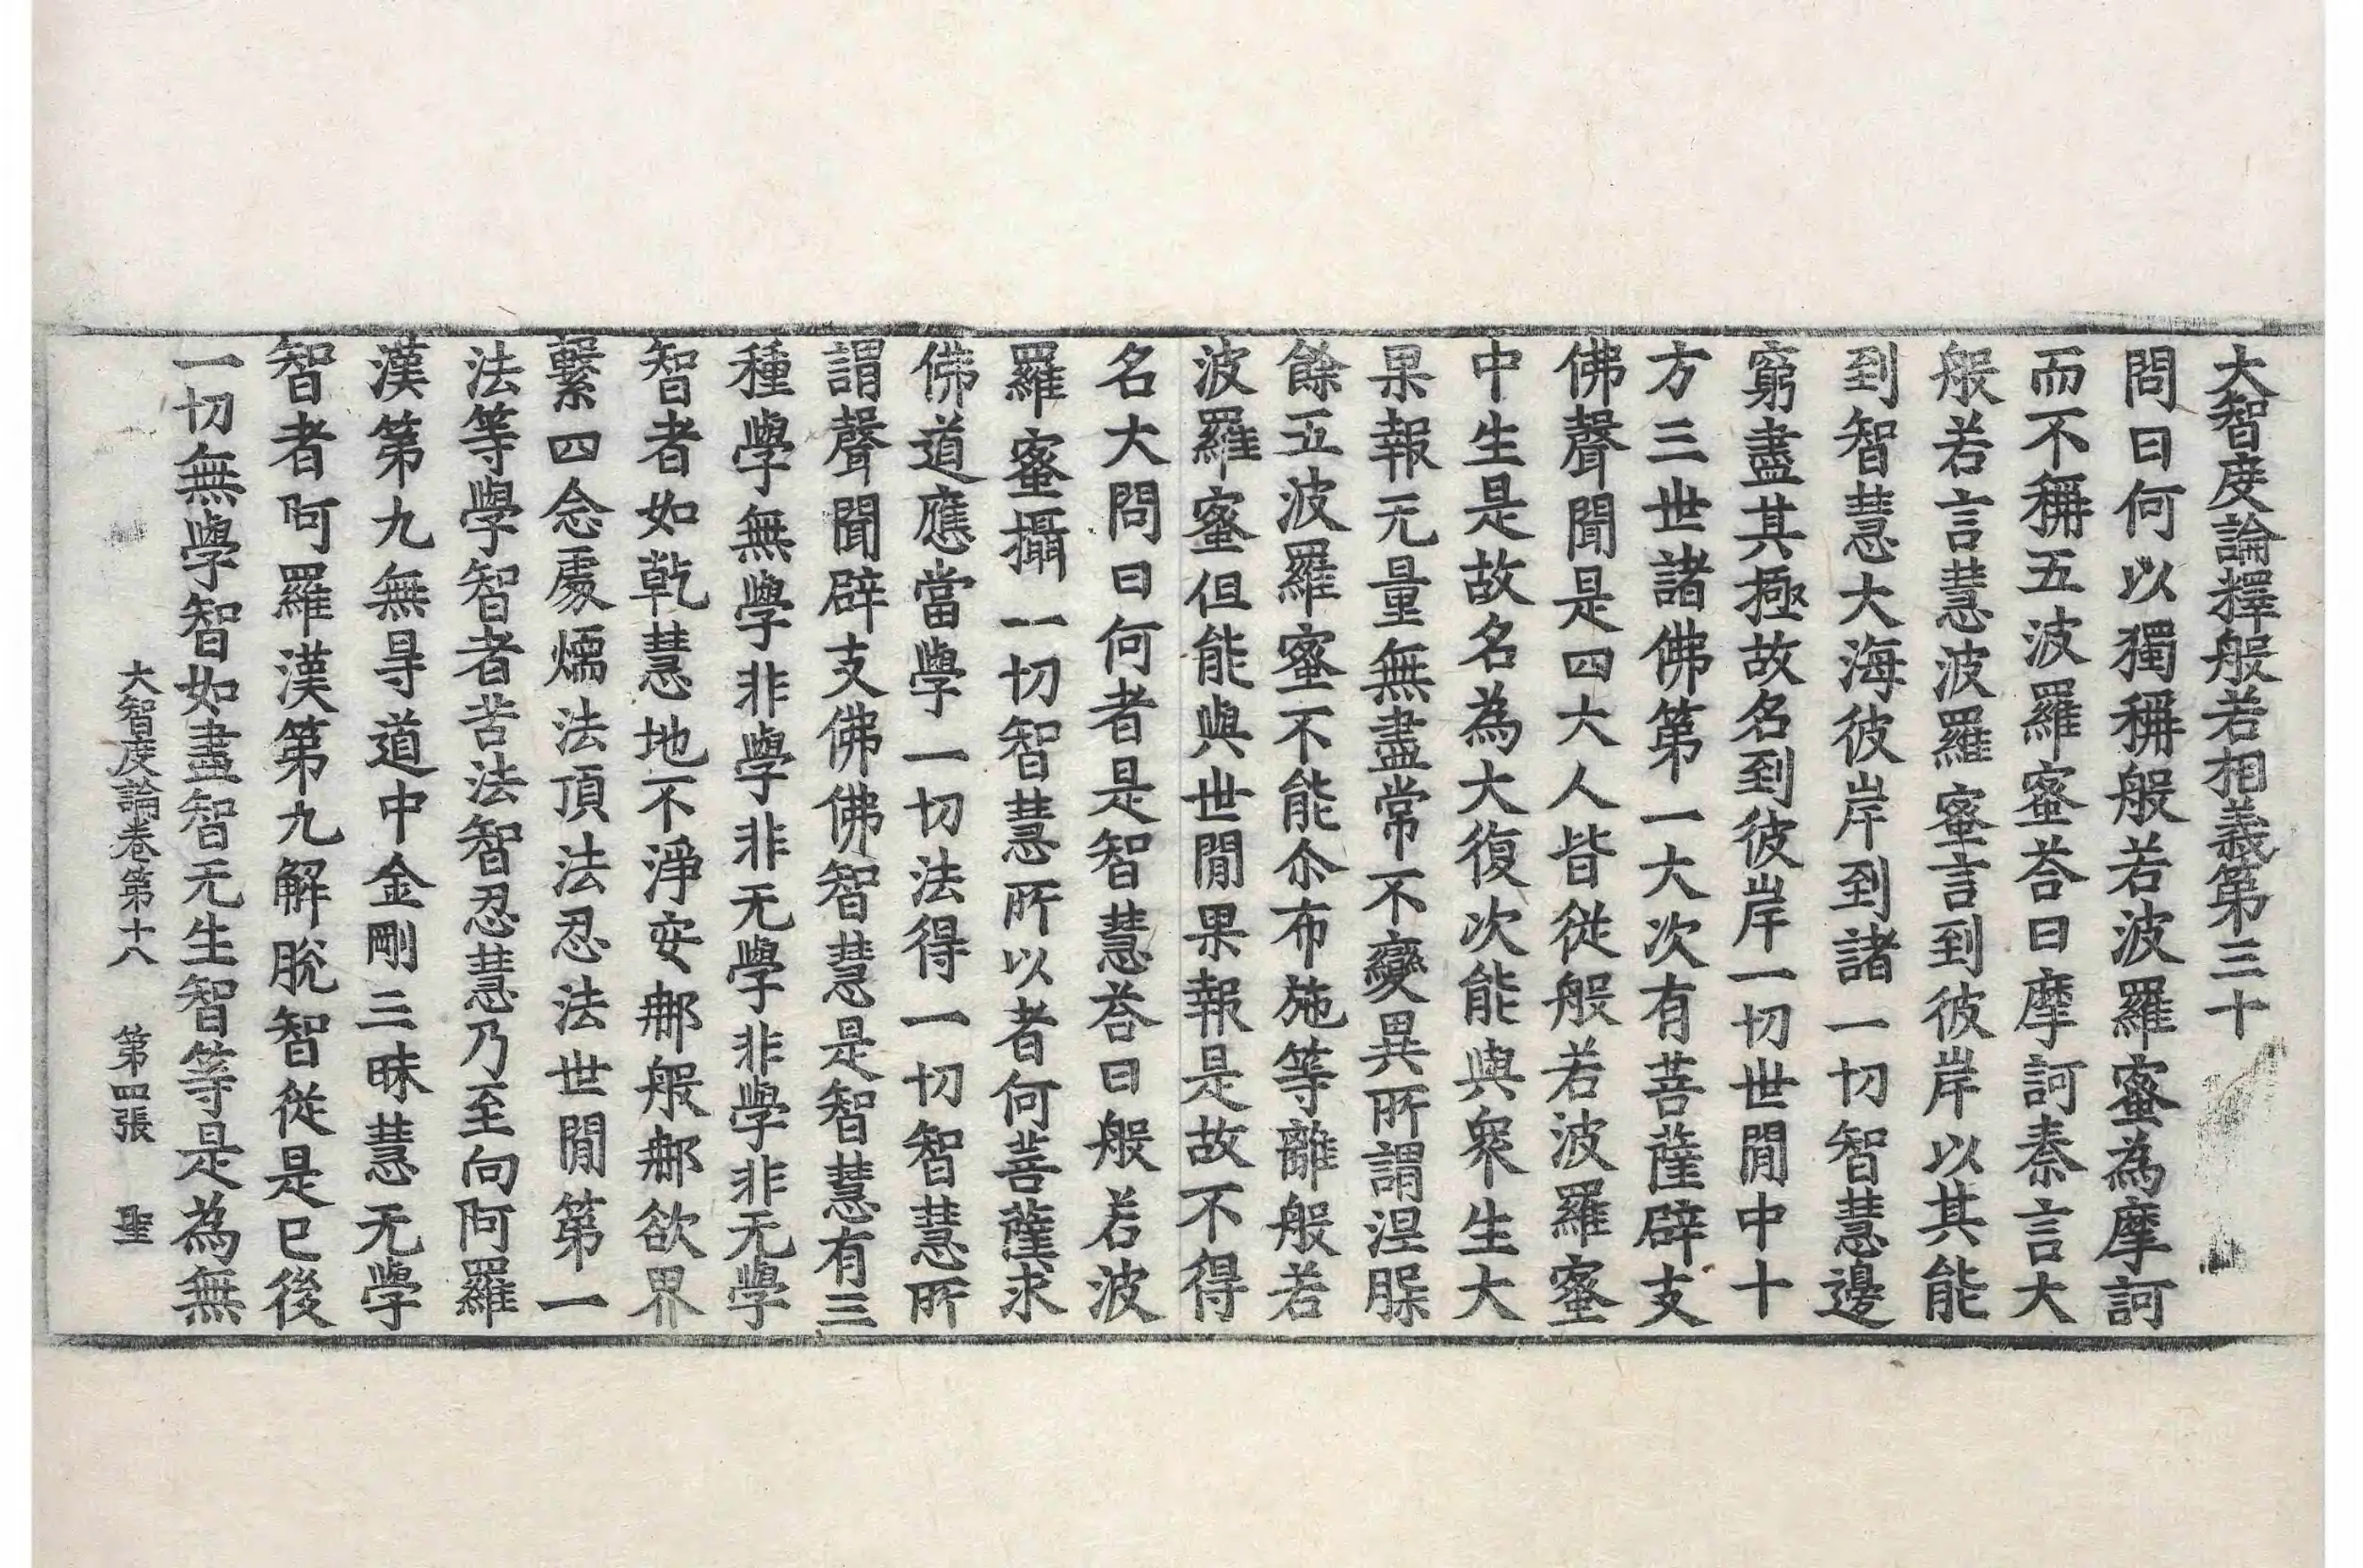 大智度論釋般若相義第三十
問曰何以獨稱般若波羅蜜為摩訶
而不稱五波羅蜜荅曰摩訶秦言大
般若言慧波羅蜜言到彼岸以其能
到智慧大海彼岸到諸一切智慧邊
窮盡其極故名到彼岸一切世閒中十
方三世諸佛第一大次有菩薩辟支
佛聲聞是四大人皆從般若波羅蜜
中生是故名為大復次能與衆生大
果報无量無盡常不變異所謂涅槃
餘五波羅蜜不能尒布施等離般若
波羅蜜但能與世閒果報是故不得
名大問曰何者是智慧荅曰般若波
羅蜜攝一切智慧所以者何菩薩求
佛道應當學一切法得一切智慧所
謂聲聞辟支佛佛智慧是智慧有三
種學無學非學非无學非學非无學
智者如乾慧地不淨安那般那欲界
繫四念處煗法頂法忍法世閒第一
法等學智者苦法智忍慧乃至向阿羅
漢第九無㝵道中金剛三昧慧无學
智者阿羅漢第九解脫智從是已後
一切無學智如盡智无生智等是為無
大智度論卷第十八 第四張 聖